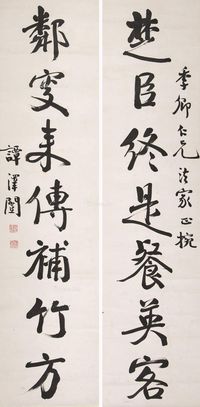 楚臣終是餐英客
季卿仁兄法家正捥
鄰叟來傳補竹方
譚澤闓